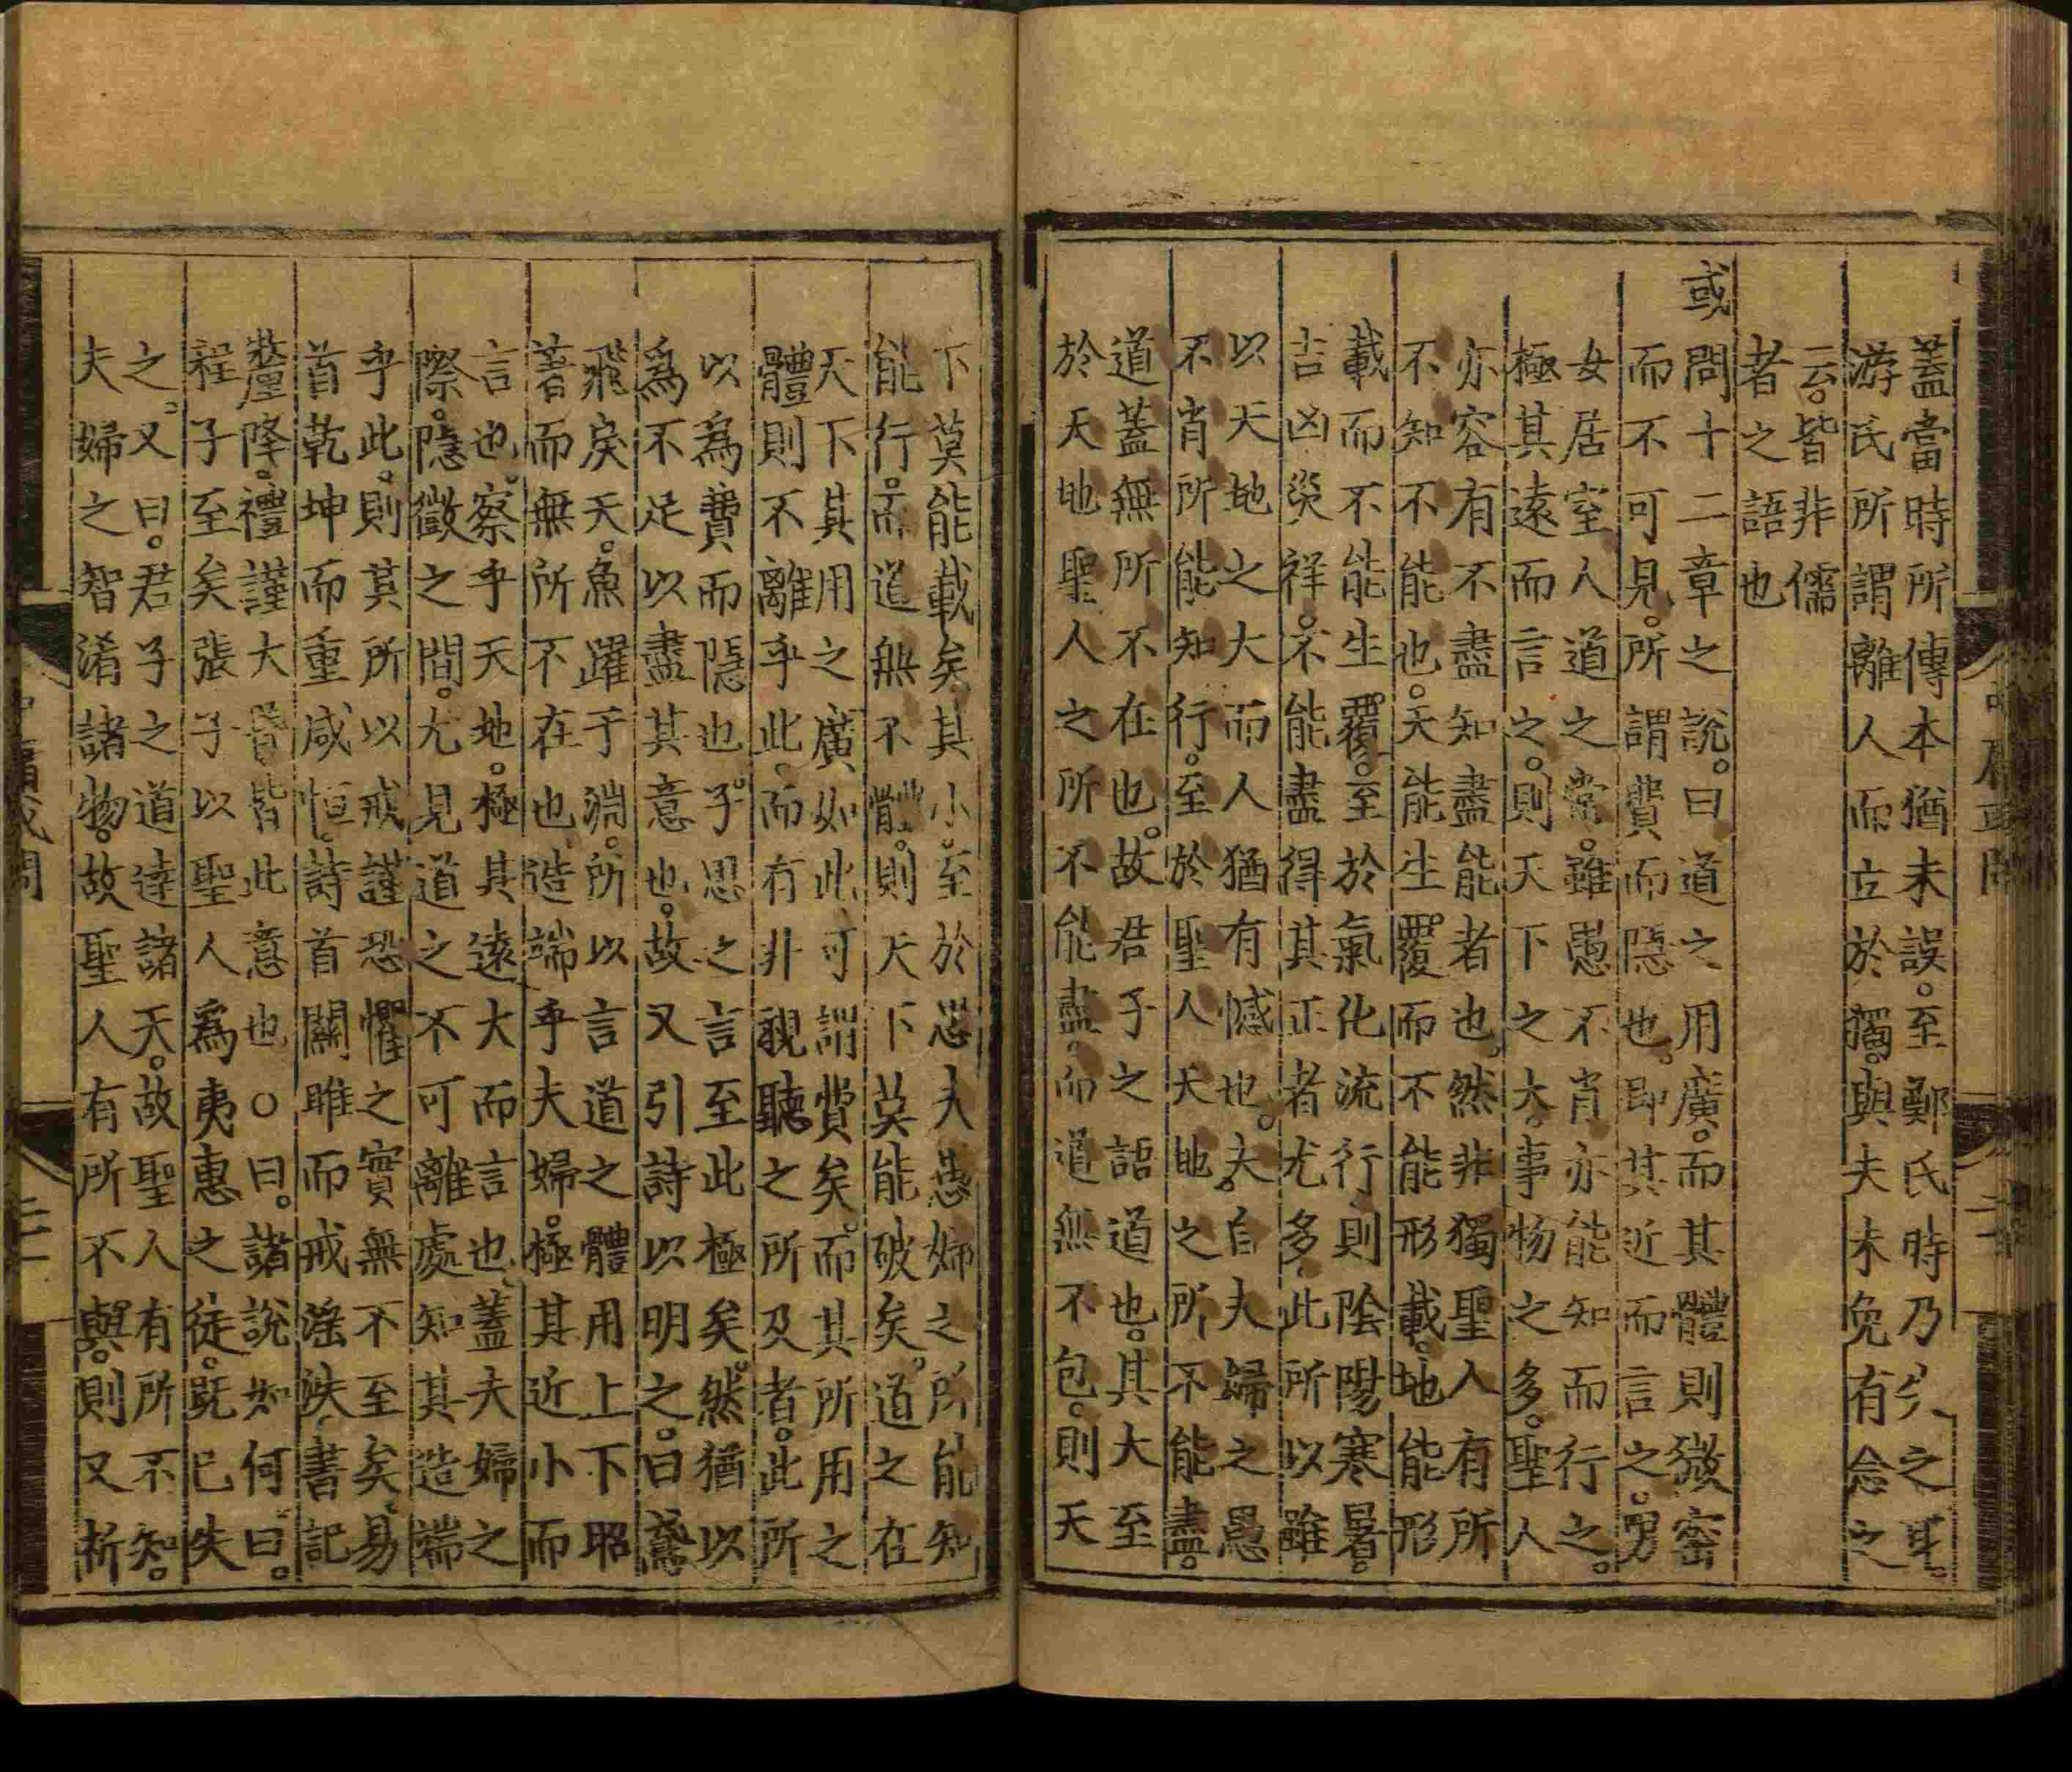 蓋當時所傳本猶未誤。至鄭氏時乃失之耳。
游氏所謂離人而立於獨。與夫未免有念之
云。皆非儒
者之語也
或問十二章之說。曰道之用廣。而其體則微密
而不可見。所謂費而隱也。即其近而言之。男
女居室人道之常。雖愚不肖亦能知而行之。
極其遠而言之。則天下之大。事物之多。聖人
亦容有不盡知盡能者也。然非獨聖人有所
不知不能也。天能生覆而不能形載。地能形
載而不能生覆。至於氣化流行。則陰陽寒暑。
吉凶災祥。不能盡得其正者尤多。此所以雖
以天地之大而人猶有憾也。夫自夫婦之愚
不肖所能知行。至於聖人天地之所不能盡。
道蓋無所不在也。故君子之語道也。其大至
於天地聖人之所不能盡。而道無不包。則天
下莫能載矣。其小至於愚夫愚婦之所能知
能行。而道無不體。則天下莫能破矣。道之在
天下其用之廣如此。可謂費矣。而其所用之
體則不離乎此。而有非視聽之所及者。此所
以為費而隱也。子思之言至此極矣。然猶以
爲不足以盡其意也。故又引詩以明之。曰鳶
飛戾天。魚躍于淵。所以言道之體用上下昭
著而無所不在也。造端乎夫婦。極其近小而
言也。察乎天地。極其遠大而言也。蓋夫婦之
際。隱微之間。尤見道之不可離處。知其造端
乎此。則其所以戒謹恐懼之實無不至矣。易
首乾坤而重咸恒。詩首關雎而戒淫泆。書記
釐降。禮謹大昏。皆此意也。○曰。諸說如何。曰。
程子至矣。張子以聖人爲夷惠之徒。既已失
之。又曰。君子之道達諸天。故聖人有所不知。
夫婦之智淆諸物。故聖人有所不與。則又析